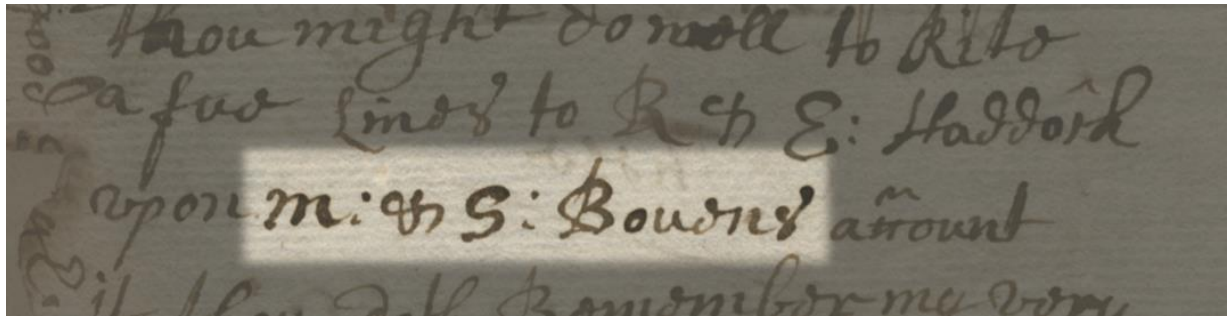 thou might do well to Rite
a fue Lines to R & E: Haddock
vpon m: & S: Bouens account
it they doth Remember me very